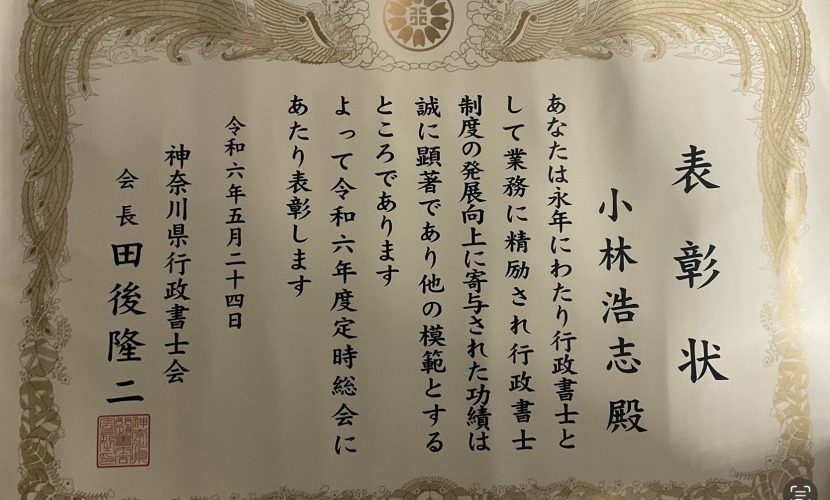 表彰状
小林浩志殿
あなたは永年にわたり行政書士と
して業務に精励され行政書士
制度の発展向上に寄与された功績は
誠に顕著であり他の模範とする
ところであります
よって令和六年度定時総会に
あたり表彰します
令和六年五月二十四日
神奈川県行政書士会
会長 田後隆二